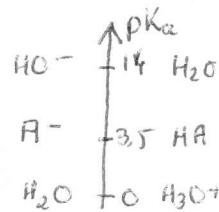 pKa
HO⁻ 14 H₂O
A⁻ 3,5 HA
H₂O 0 H₃O⁺